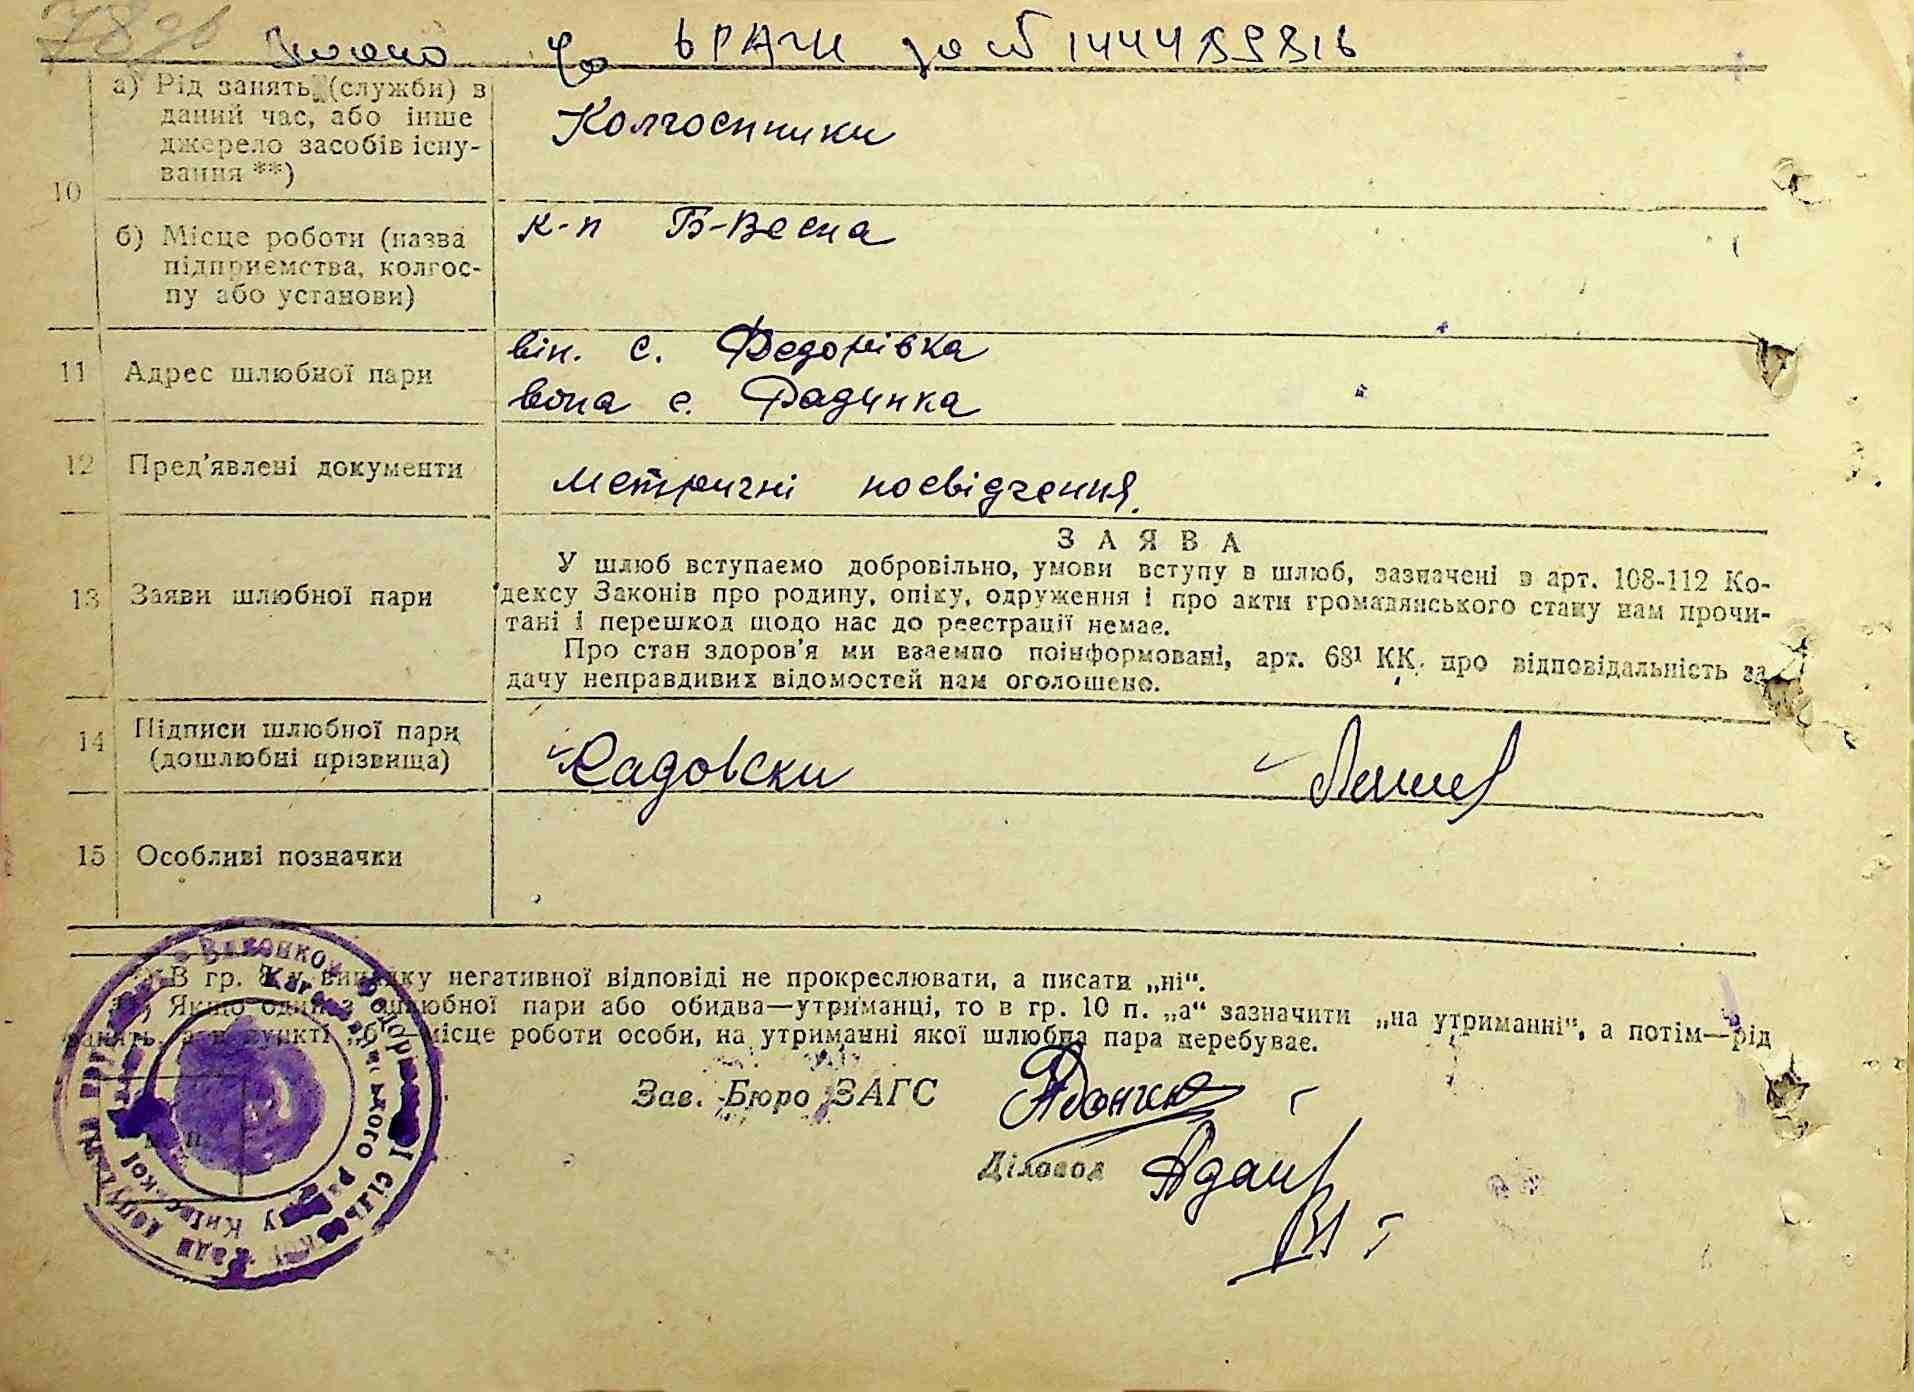 78зв
Внесено до ДРАЦС за №
10
а) Рід занять (служби) в
даний час, або інше
джерело засобів існу-
вання **)
Колгоспники
б) Місце роботи (назва
підприємства, колгос-
пу або установи)
к-п Б-Весна
11
Адрес шлюбної пари
він. с. Федорівка
вона с.
12
Пред'явлені документи
метричні посвідчення.
13
Заяви шлюбної пари
ЗАЯВА
У шлюб вступаємо добровільно, умови вступу в шлюб, зазначені в арт. 108-112 Ко-
дексу Законів про родину, опіку, одруження і про акти громадянського стану нам прочи-
тані і перешкод щодо нас до реєстрації немає.
Про стан здоров'я ми взаємно поінформовані, арт. 68¹ КК. про відповідальність за
дачу неправдивих відомостей нам оголошено.
14
Підписи шлюбної пари
(дошлюбні прізвища)
Садовски
15
Особливі позначки
*) В гр. 8 у випадку негативної відповіді не прокреслювати, а писати „ні“.
**) Якщо один з шлюбної пари або обидва—утриманці, то в гр. 10 п. „а“ зазначити „на утриманні“, а потім—рід
занять, а в пункті „б“ місце роботи особи, на утриманні якої шлюбна пара перебуває.
Зав. Бюро ЗАГС
Діловод